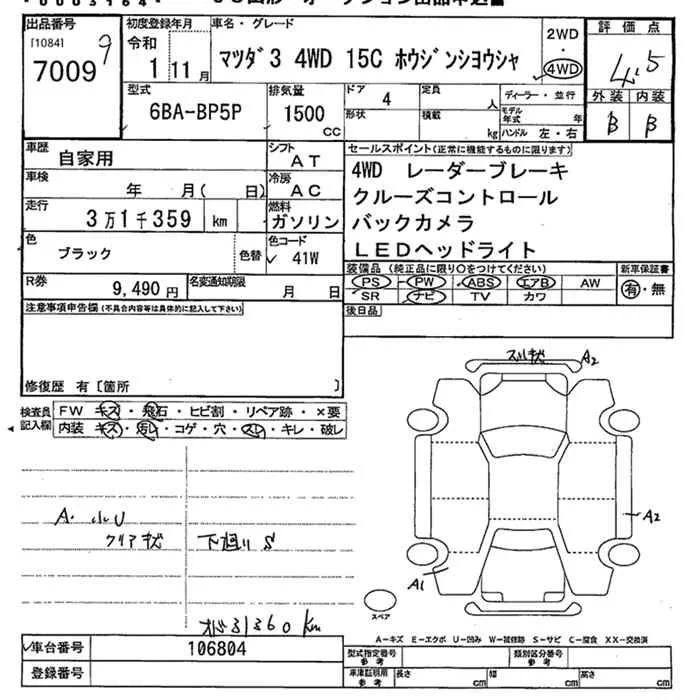 出品番号 初度登録年月 車名・グレード 2WD 評価点
[1084] 9 令和
7009 1年11月 マツダ3 4WD 15C ホウジンシヨウシャ ・ 4WD 4.5
型式 排気量 ドア 4 定員 人 ディーラー・並行 外装 内装
6BA-BP5P 1500 cc 形状 積載 kg モデル年式 年 ハンドル 左・右 B B
車歴 自家用 シフト AT セールスポイント(正常に機能するものに限ります)
車検 年 月( 日) 冷房 AC 4WD レーダーブレーキ
走行 3万1千359 km 燃料 ガソリン クルーズコントロール
バックカメラ
色 ブラック 色替 色コード 41W LEDヘッドライト
R券 9,490円 名変通知期限 月 日 装備品(純正品に限り○をつけてください) 新車保証書
PS ・ PW ・ ABS ・ エアB ・ AW 有・無
SR ナビ TV カワ
注意事項申告欄(不具合内容等は具体的に記入して下さい) 後日品
修復歴 有〔箇所 〕
検査員記入欄 FW キズ・飛石・ヒビ割・リペア跡・×要
内装 キズ・汚レ・コゲ・穴・スレ・キレ・破レ
スリキズ A2
A2
A・小U
クリアキズ 下廻り S
A1
スペア
31360km
A−キズ E−エクボ U−凹み W−補修跡 S−サビ C−腐食 XX−交換済
車台番号 106804 型式指定番号 参考 類別区分番号 参考
登録番号 車庫証明用 参考 長さ cm 幅 cm 高さ cm